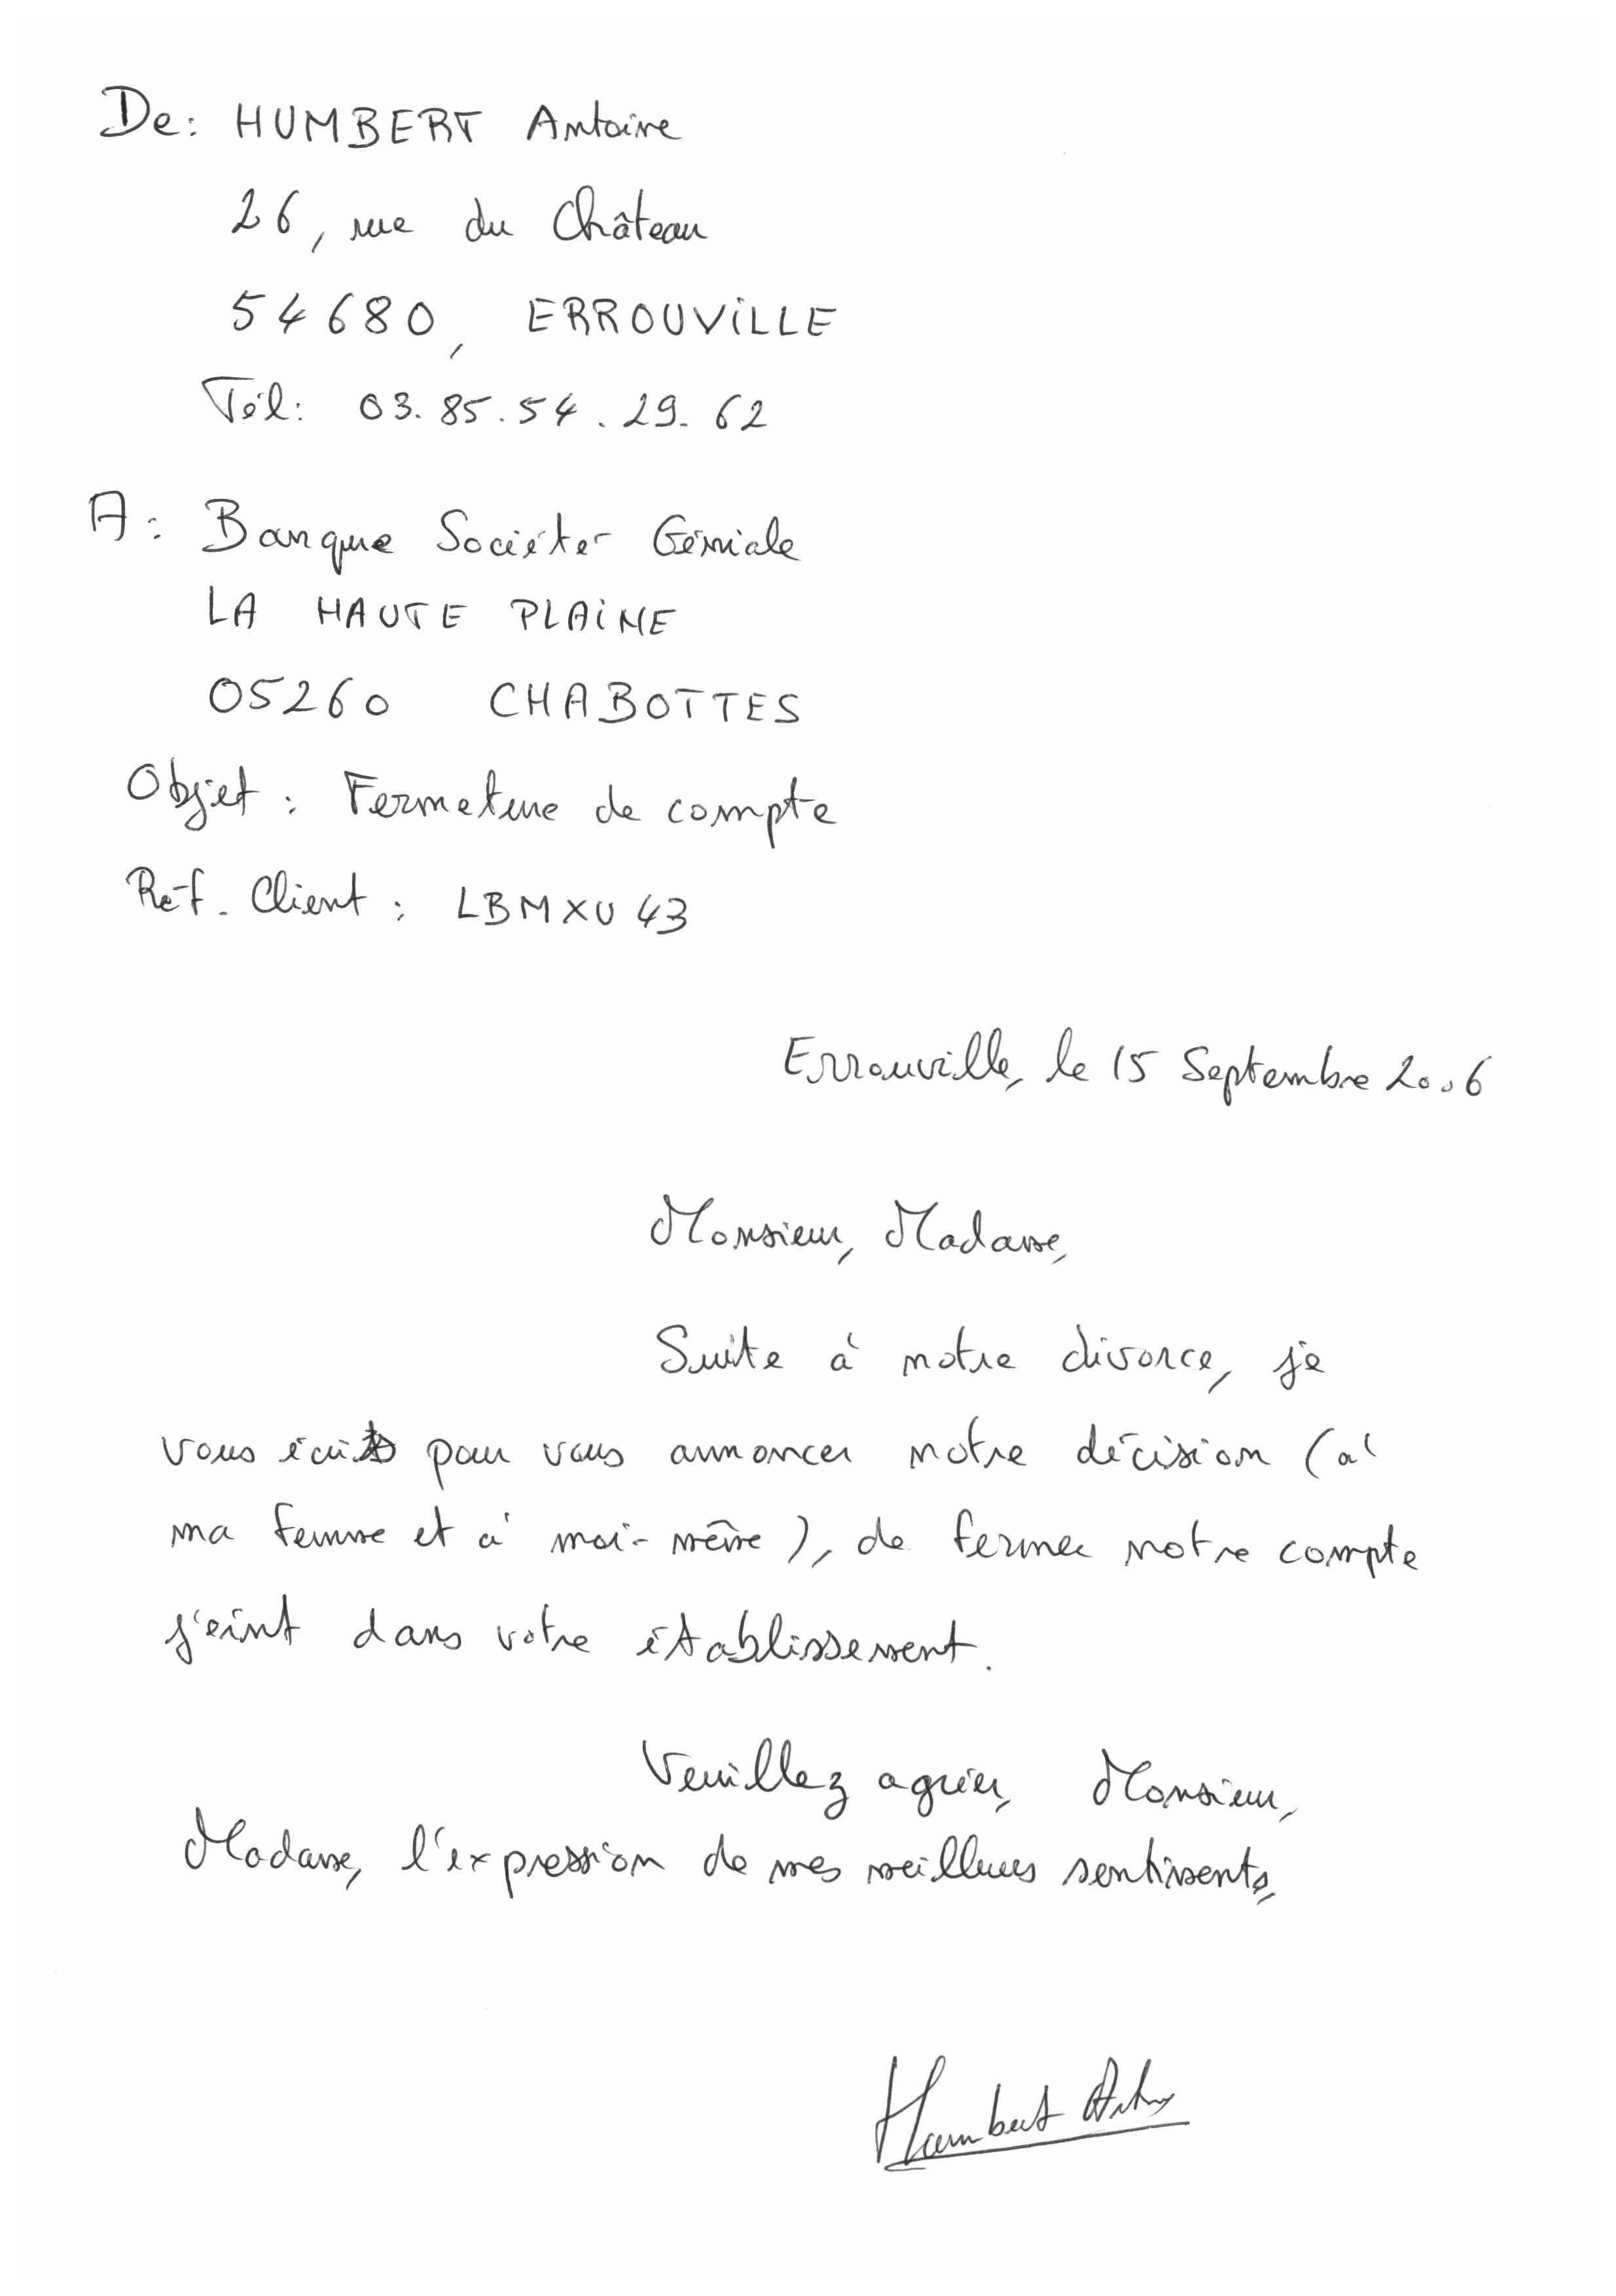 De: HUMBERT Antoine
26, rue du Château
54680, ERROUVILLE
Tél: 03.85.54.29.62
A: Banque Sociéter Géniale
LA HAUTE PLAINE
05260 CHABOTTES
Objet : Fermeture de compte
Réf. Client : LBMXU43
Errouville, le 15 Septembre 2006
Monsieur, Madame,
Suite à notre divorce, je
vous écris pour vous annoncer notre décision (à
ma femme et à moi-même), de fermer notre compte
joint dans votre établissement.
Veuillez agréer, Monsieur,
Madame, l'expression de mes meilleurs sentiments,
Humbert